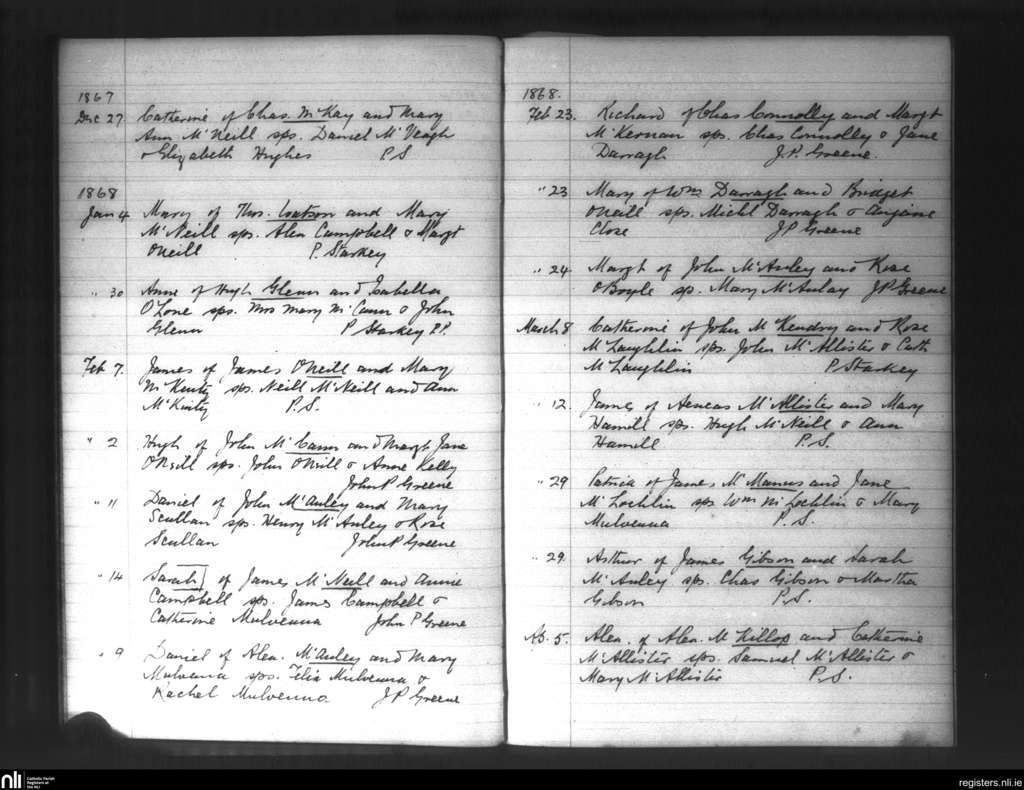 1867
Dec 27. Catherine of Chas. McKay and Mary
Ann McNeill sps. Daniel McVeagh
& Elizabeth Hughes P.S
1868
Jan 4 Mary of Thos. Watson and Mary
McNeill sps. Alex Campbell & Margt
O'Neill P. Starkey
" 30 Anne of Hugh Glenn and Isabella
O'Lone sps. Mrs Mary McCann & John
Glenn P Starkey P.P.
Feb 7. James of James O'Neill and Mary
McKinty sps. Neill McNeill and Ann
McKinty P.S.
" 2 Hugh of John McCann and Margt Jane
O'Neill sps. John O'Neill & Anne Kelly
John P Greene
" 11 Daniel of John McAuley and Mary
Scullan sps. Henry McAuley & Rose
Scullan John P Greene
" 14 Sarah of James McNeill and Annie
Campbell sps. James Campbell &
Catherine Mulvenna John P Greene
" 9 Daniel of Alex. McAuley and Mary
Mulvenna sps. Felix Mulvenna &
Rachel Mulvenna. J P Greene
1868.
Feb 23. Richard of Chas Connolley and Margt
McKernan sps. Chas Connolley & Jane
Darragh J.P. Greene.
" 23 Mary of Wm Darragh and Bridget
O'Neill sps. Michl Darragh &
Close J P Greene
" 24 Margt of John McAuley and Rose
O'Boyle sp. Mary McAulay J P Greene
March 8 Catherine of John McKendry and Rose
McLaughlin sps. John McAllister & Cath
McLaughlin P Starkey
" 12. James of Aeneas McAllister and Mary
Hamill sps. Hugh McNeill & Ann
Hamill P.S.
" 29 Patrick of James McManus and Jane
McLochlin sps Wm McLochlin & Mary
Mulvenna P.S.
" 29. Arthur of James Gibson and Sarah
McAuley sps. Chas Gibson & Martha
Gibson P.S.
Ap. 5. Alex. of Alex. McKillop and Catherine
McAllister sps. Samuel McAllister &
Mary McAllister P.S.
nli Catholic Parish
Registers at
the NLI
registers.nli.ie